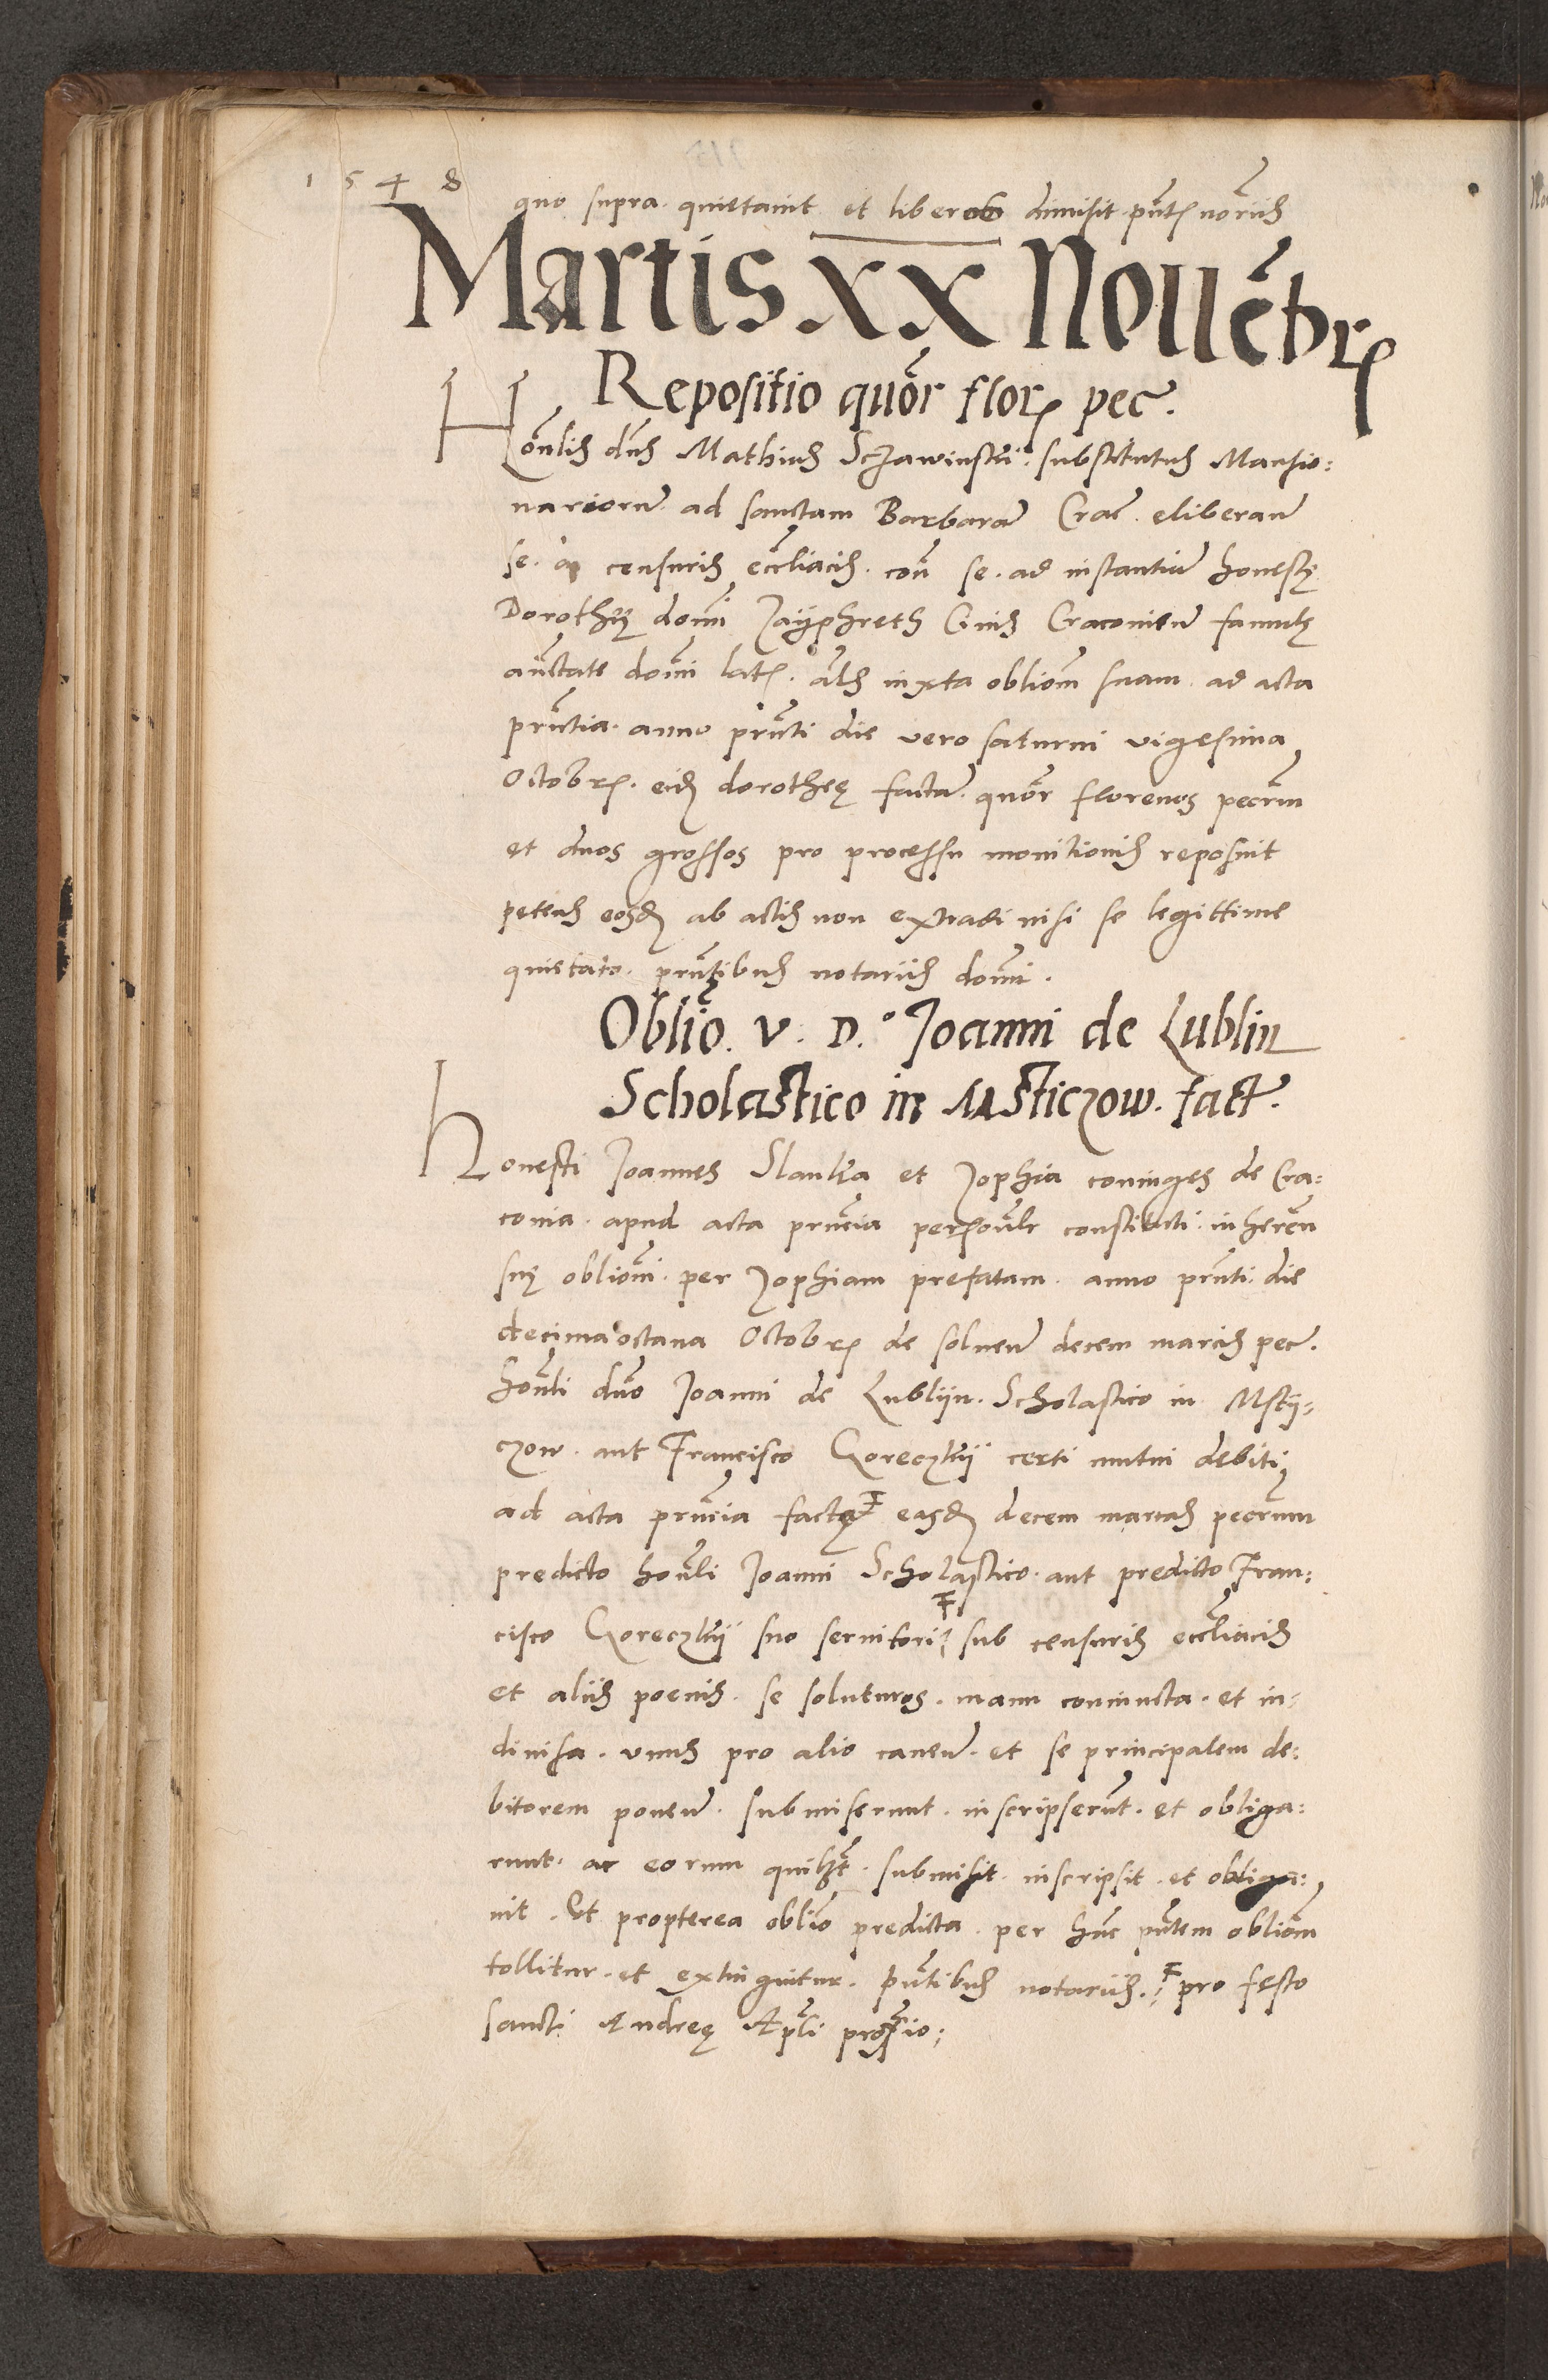 1548
quo supra. quietauit et liberos dimisit. pñt₎ noriis
Martis XX Nouẽbr₎
Repositio quõr flor₎ pec̃.
Hoñlis dñs Mathias Sczawinski. substitutus Mansio:
nariorũ ad sanctam Barbarã Crac̃. eliberan̄
se. a censuris eccl̃iacis. con̄ se. ad instantiã honestę
Dorothęę domi Jayphreth Ciuis Cracovien̄ famulę
auc̃tate domi lat₎. al̃s iuxta obliom̃ suam. ad acta
prñtia. anno prñti die vero saturni vigesima
Octobr₎. eid₎ dorotheę factã. quõr florenos pecrm̃
et duos grossos pro processu monitionis reposuit
petens eosd₎ ab actis non extradi nisi se legittime
quietato. prñtibus notariis domi.
Oblio. V. D.° Joanni de Lublin
Scholastico in Msticzow. fact̃.
Honesti Joannes Slawka et Zophia coniuges de Cra:
couia. apud acta prñcia personl̃r constituti. inheren̄
suę obliom̃i. per Zophiam prefatam. anno prñti. die
decima octaua Octobr₎ de soluen̄ decem marcis pec̃.
hoñli dño Joanni de Lublijn. Scholastico in Mstij:
czow. aut Francisco Goreczkij certi mutui debiti
ad acta prñcia factę easd₎ decem marcas pecrũm
predicto hoñli Joanni Scholastico. aut predicto Fran:
cisco Goreczkij suo seruitori sub censuris eccl̃iacis
et aliis poenis. se soluturos. manu coniuncta. et in:
diuisa. vnus pro alio cauen̄. et se principalem de:
bitorem ponen̄. submiserunt. inscripserũt. et obliga:
runt. ac eorum quilib₃t. submisit. inscripsit. et obliga:
uit. Et propterea oblio predicta. per hãc pñtem obliom̃
tollitur. et extinguitur. Pñtibus notariis.; pro festo
sancti Andreę Apl̃i proxio;